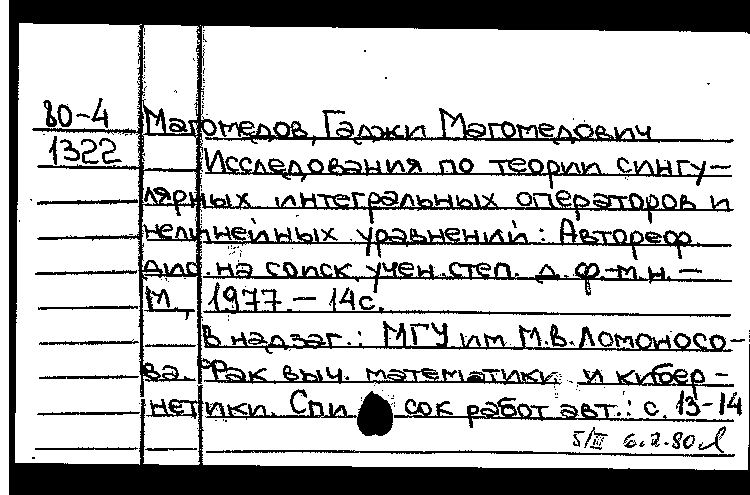 80-4 Магомедов, Гаджи Магомедович
1322 Исследования по теории сингу-
лярных интегральных операторов и
нелинейных уравнений: Автореф.
дис. на соиск. учен. степ. д. ф.-м. н. —
М., 1977. — 14 с.
В надзаг.: МГУ им М.В. Ломоносо-
ва. Фак выч. математики и кибер-
нетики. Спи сок работ авт.: с. 13-14
5/III